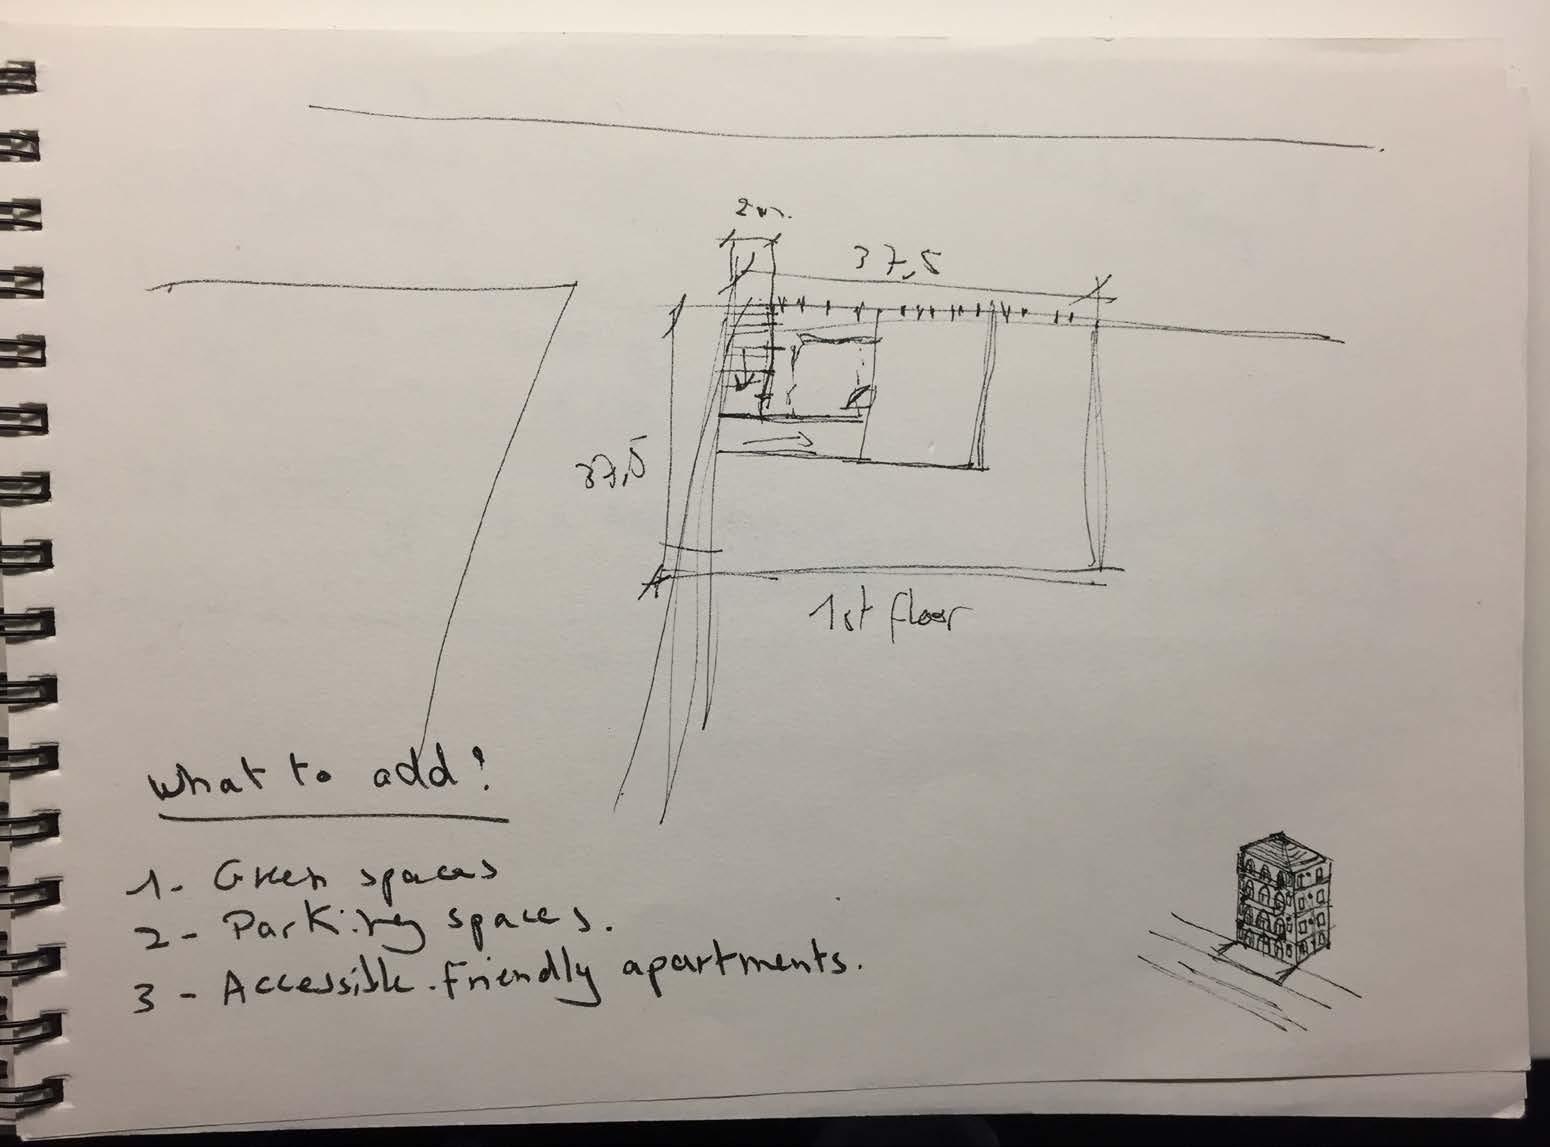 2 m.
37,5
37,5
1st floor
What to add?
1- Green spaces
2- Parking spaces.
3- Accessible-friendly apartments.